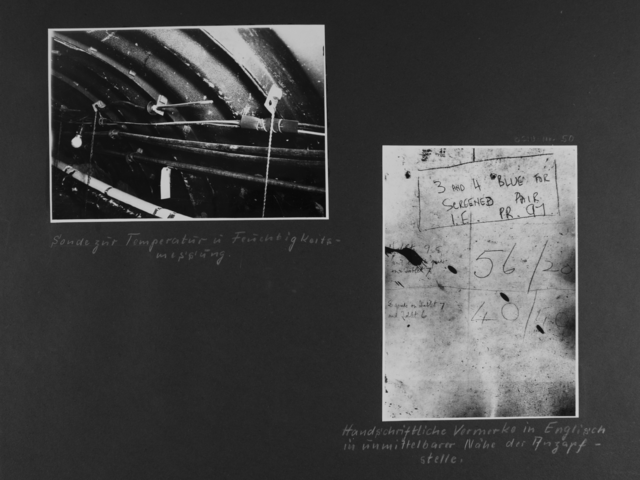 Sonde zur Temperatur u Feuchtigkeits-
messung.
3 AND 4 "BLUE" FOR
SCREENED PAIR
I.E. PR. 97
56/20
40/
Handschriftliche Vermerke in Englisch
in unmittelbarer Nähe der Anzapf-
stelle.